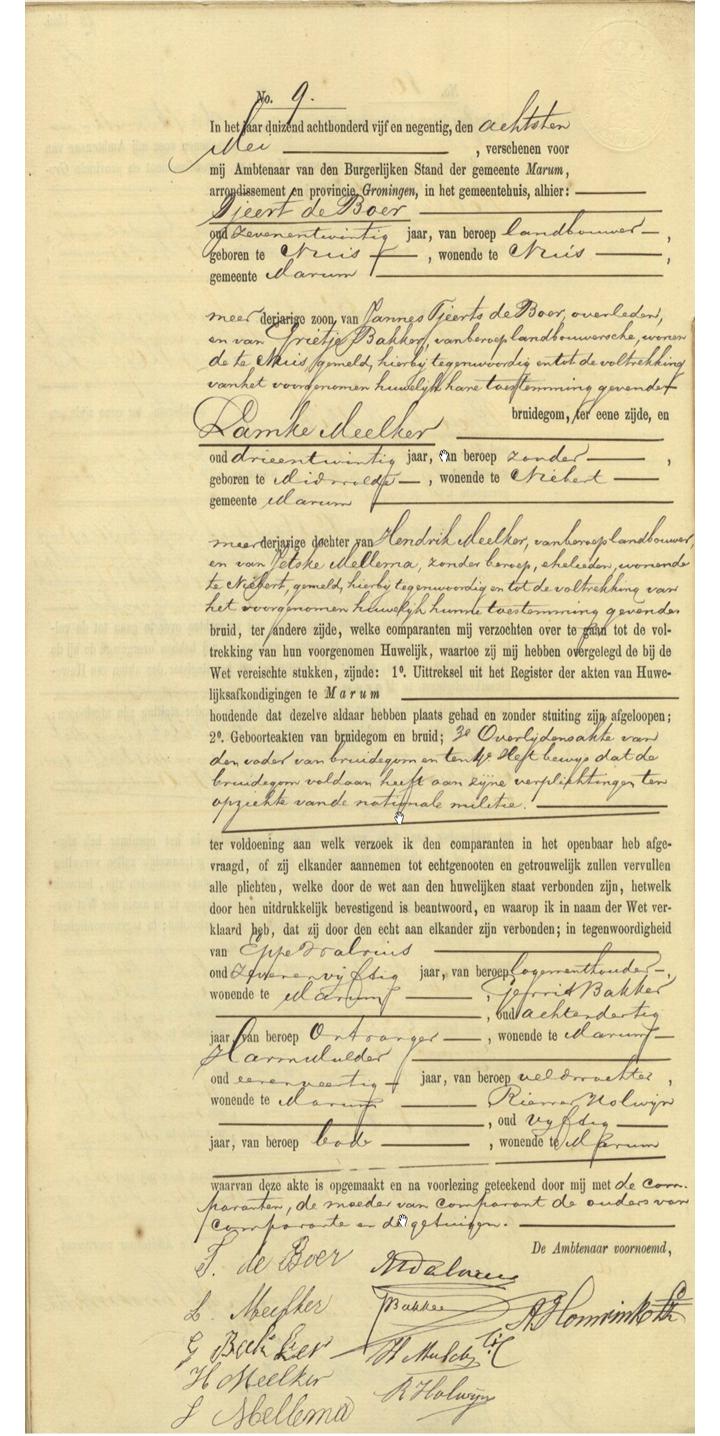 No. 9.
In het jaar duizend achthonderd vijf en negentig, den achtsten
Mei , verschenen voor
mij Ambtenaar van den Burgerlijken Stand der gemeente Marum,
arrondissement en provincie Groningen, in het gemeentehuis, alhier:
Tjeert de Boer
oud zevenentwintig jaar, van beroep landbouwer ,
geboren te Nuis , wonende te Nuis ,
gemeente Marum
meerderjarige zoon van Jannes Tjeerts de Boer, overleden,
en van Grietje Bakker, van beroep landbouwersche, wonen
de te Nuis, gemeld, hierbij tegenwoordig en tot de voltrekking
van het voorgenomen huwelijk hare toestemming gevende
bruidegom, ter eene zijde, en
Lamke Meelker
oud drieentwintig jaar, van beroep zonder ,
geboren te Midwolde , wonende te Niebert
gemeente Marum
meerderjarige dochter van Hendrik Meelker, van beroep landbouwer,
en van Jetske Mellema, zonder beroep, ehelieden, wonende
te Niebert, gemeld, hierbij tegenwoordig en tot de voltrekking van
het voorgenomen huwelijk hunne toestemming gevende
bruid, ter andere zijde, welke comparanten mij verzochten over te gaan tot de vol-
trekking van hun voorgenomen Huwelijk, waartoe zij mij hebben overgelegd de bij de
Wet vereischte stukken, zijnde: 1º. Uittreksel uit het Register der akten van Huwe-
lijksafkondigingen te Marum
houdende dat dezelve aldaar hebben plaats gehad en zonder stuiting zijn afgeloopen;
2º. Geboorteakten van bruidegom en bruid; 3e Overlijdensakte van
den vader van bruidegom en ten 4e Heft bewijs dat de
bruidegom voldaan heeft aan zijne verplichtingen ten
opzichte van de nationale militie.
ter voldoening aan welk verzoek ik den comparanten in het openbaar heb afge-
vraagd, of zij elkander aannemen tot echtgenooten en getrouwelijk zullen vervullen
alle plichten, welke door de wet aan den huwelijken staat verbonden zijn, hetwelk
door hen uitdrukkelijk bevestigend is beantwoord, en waarop ik in naam der Wet ver-
klaard heb, dat zij door den echt aan elkander zijn verbonden; in tegenwoordigheid
van Eppe Walrius
oud zevenenvijftig jaar, van beroep logementhouder ,
wonende te Marum , Gerrit Bakker
, oud achtendertig
jaar, van beroep Ontvanger , wonende te Marum
Harm Mulder
oud eenenveertig jaar, van beroep veldwachter ,
wonende te Marum Rienner Holwijn
, oud vijftig
jaar, van beroep bode , wonende te Marum
waarvan deze akte is opgemaakt en na voorlezing geteekend door mij met de com-
paranten, de moeder van comparant de ouders van
comparante en de getuigen.
De Ambtenaar voornoemd,
T. de Boer
L. Meelker
G Bakker
H Meelker
J Mellema
Bakker
H Mulder
R Holwijn